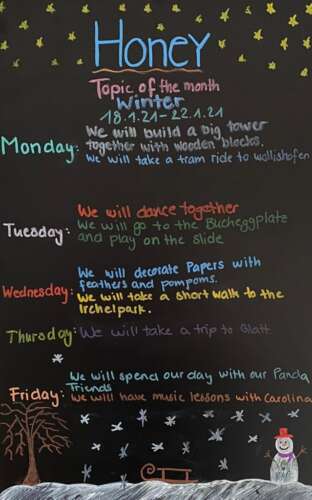 Honey
Topic of the month
Winter
18.1.21-22.1.21
Monday: We will build a big tower
together with wooden blocks.
We will take a tram ride to Wollishofen
We will dance together
Tuesday: We will go to the Bucheggplate
and play on the slide
We will decorate Papers with
feathers and pompoms.
Wednesday: We will take a short walk to the
Irchelpark.
Thursday: We will take a trip to Glatt
We will spend our day with our Panda
Friends
Friday: We will have music lessons with Carolina